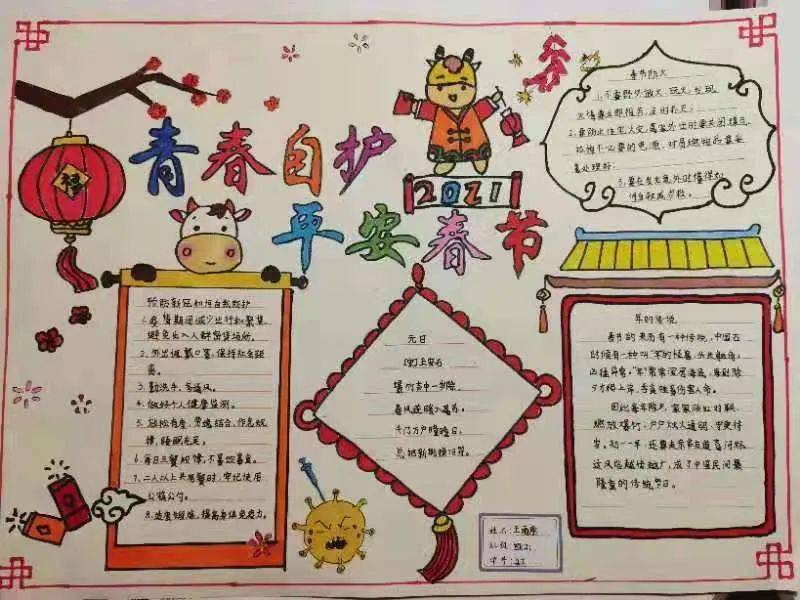 青春自护
平安春节
2021
福
春节防火
1.不要野外放火、玩火,发现
火情要立即报告,
2.要防止住宅火灾,离家外出时要关闭
不必要的电源,对易燃物品要妥
善处理好.
3.要在发生意外时懂得如
何自救或与救。
预防新冠加强自我防护
1.疫情期间减少出行和聚集
避免出入人群密集场所。
2.外出佩戴口罩,保持社交距
离。
3.勤洗手,多通风。
4.做好个人健康监测。
5.放松有度,劳逸结合,作息规
律,睡眠充足。
6.每日三餐规律,不喜饮暴食。
7.二人以上共用餐时,牢记使用
公筷公勺。
8.适度锻炼,提高身体免疫力。
元日
爆竹声中一岁除,
春风送暖入屠苏。
千门万户曈曈日,
总把新桃换旧符。
年的传说
春节的来历有一种传说,中国古
时候有一种叫"年"的怪兽,头长触角,
凶猛异常。"年"兽常深居海底,每到除
夕才爬上岸,吞食牲畜伤害人命。
因此每年除夕,家家贴红对联、
燃放爆竹,户户灯火通明,守更待
岁。初一一早,还要走亲串友道喜问好。
这风俗越传越广,成了中国民间最
隆重的传统节日。
姓名:王雨
班级:
学号:27